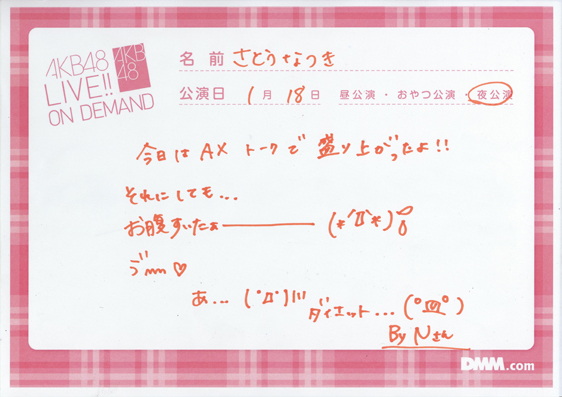 AKB48
LIVE!!
ON DEMAND
AKB
48
名前 さとうなつき
公演日 1月 18日 昼公演・おやつ公演・夜公演
今日は AX トークで 盛り上がったよ!!
それにしても...
お腹すいたぁ――――― (*´Д`*)
う゛ 
あ... (ﾟДﾟ)!!! ダイエット...
By Nさん
DMM.com